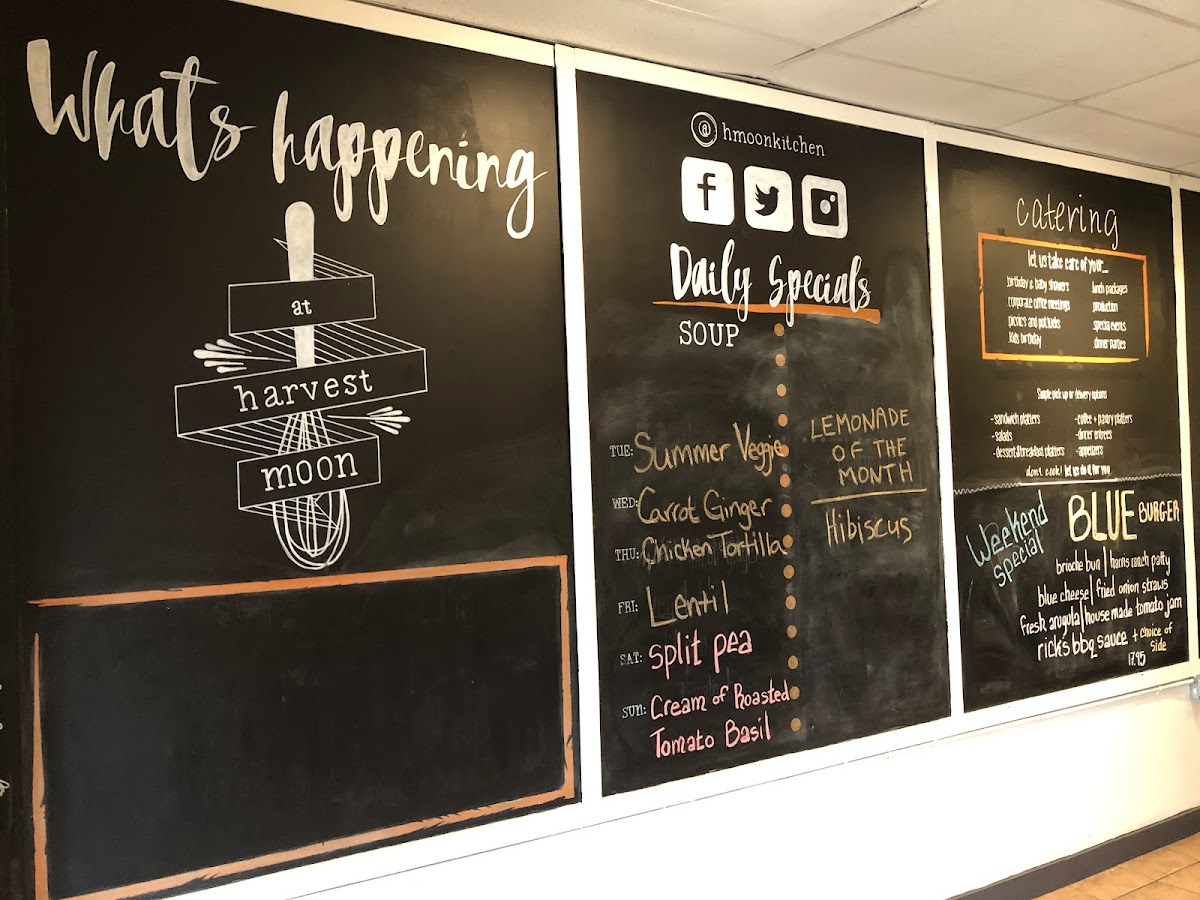 Whats happening
at
harvest
moon
@ hmoonkitchen
f
Daily Specials
SOUP
TUE: Summer Veggie
WED: Carrot Ginger
THU: Chicken Tortilla
FRI: Lentil
SAT: split pea
SUN: Cream of Roasted
Tomato Basil
LEMONADE
OF THE
MONTH
Hibiscus
catering
let us take care of your...
birthday & baby showers
corporate office meetings
picnics and potlucks
kids birthday
lunch packages
production
special events
dinner parties
Sample pick up or delivery options
-sandwich platters
-salads
-dessert&breakfast platters
-coffee + pastry platters
-dinner entrees
-appetizers
dont cook! let us do it for you
Weekend
special
BLUE BURGER
brioche bun | harris ranch patty
blue cheese | fried onion straws
fresh arugula | house made tomato jam
rick's bbq sauce + choice of
side
17.95